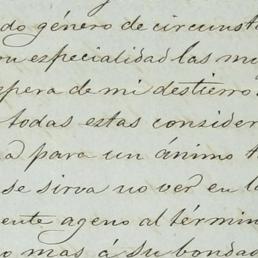 do género de circunst
en especialidad las mu
spera de mi destierro
todas estas consider
a para un ánimo t
se sirva no ver en la
ente ageno al términ
o mas á su bondad